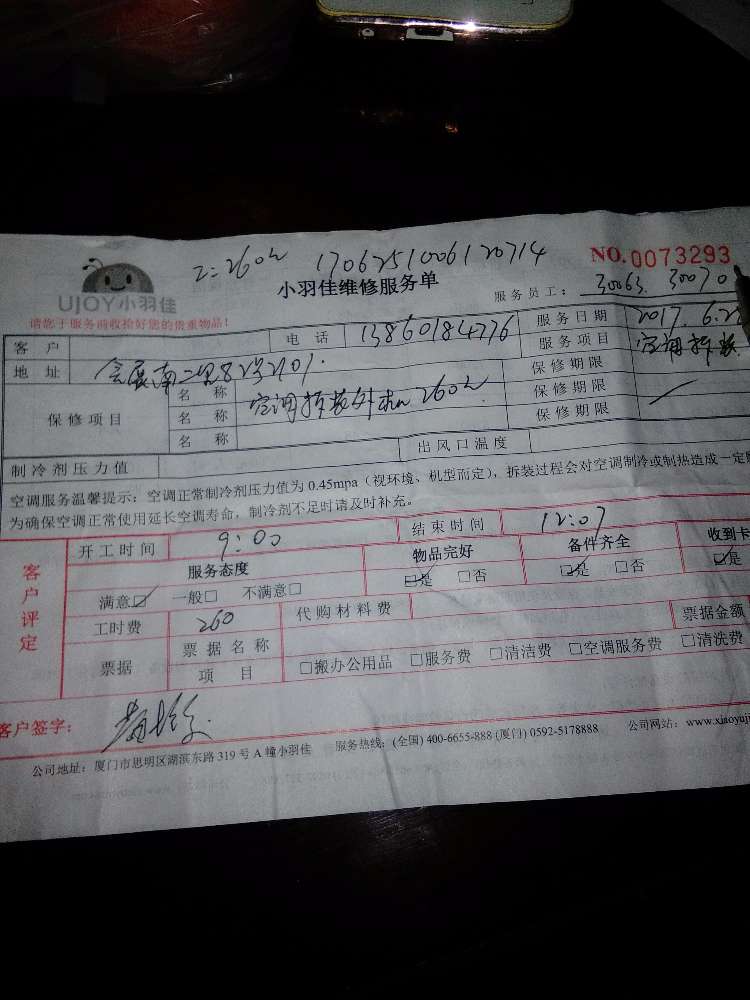 1706251006120714
NO.0073293
UJOY小羽佳
小羽佳维修服务单
服务员工: 30063. 30070
请您于服务前收捡好您的贵重物品!
客户 电话 13860184776 服务日期 2017.6.2
地址 会展南二里82号2101. 服务项目 空调拆装
保修项目 名称 空调拆装外机260元 保修期限
名称 保修期限
名称 保修期限
制冷剂压力值 出风口温度
空调服务温馨提示:空调正常制冷剂压力值为 0.45mpa(视环境、机型而定),拆装过程会对空调制冷或制热造成一定
为确保空调正常使用延长空调寿命,制冷剂不足时请及时补充。
客户评定 开工时间 9:00 结束时间 12:07
服务态度 物品完好 备件齐全 收到卡
满意☑ 一般□ 不满意□ ☑是 □否 ☑是 □否 ☑是
工时费 260 代购材料费 票据金额
票据 票据名称
项目 □搬办公用品 □服务费 □清洁费 □空调服务费 □清洗费
客户签字:
公司地址:厦门市思明区湖滨东路 319 号 A 幢小羽佳 服务热线:(全国) 400-6655-888 (厦门) 0592-5178888 公司网站:www.xiaoyuj